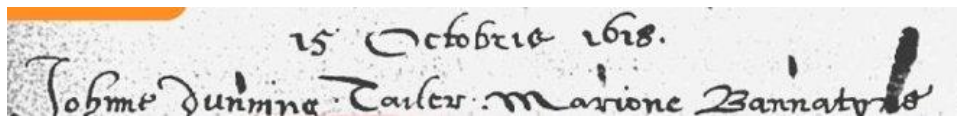 15 Octobris 1618.
Johnne Dunning Tailer. Marione Bannatyne